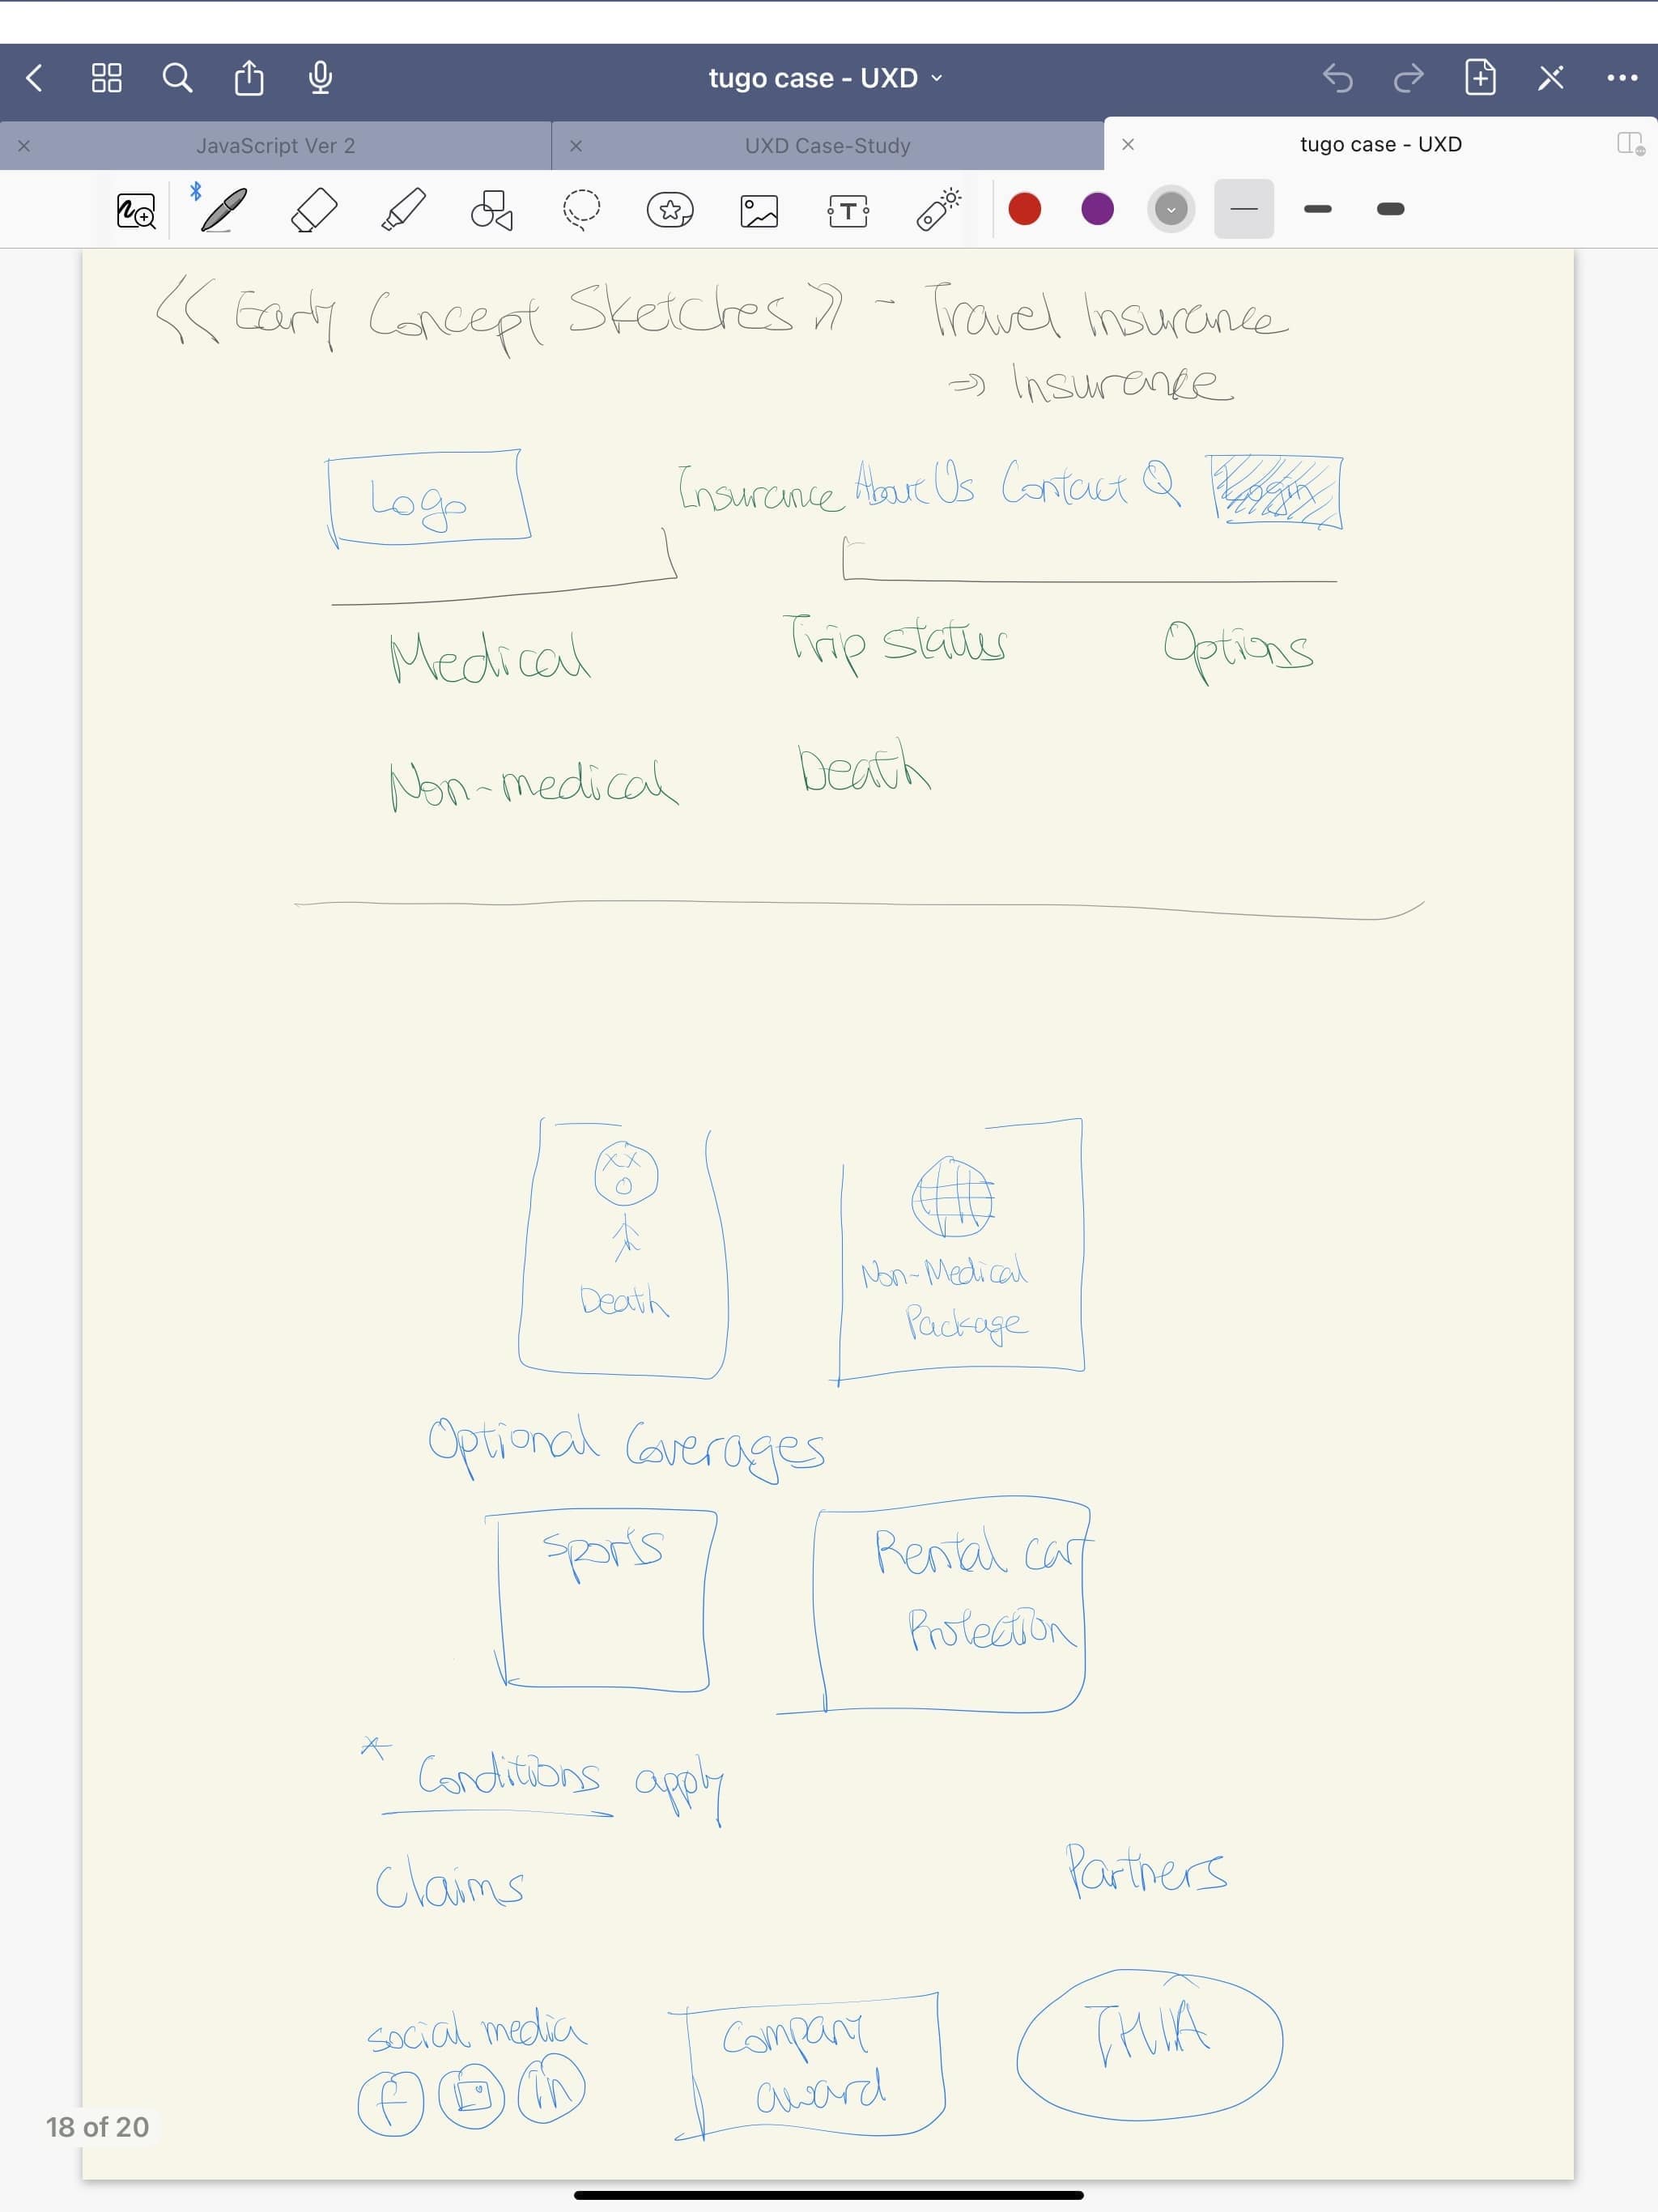 tugo case - UXD
JavaScript Ver 2
UXD Case-Study
tugo case - UXD
T
《Early Concept Sketches》 - Travel Insurance
⇒ Insurance
Logo
Insurance About Us Contact Login
Medical Trip status Options
Non-medical Death
Death
Non-Medical
Package
Optional Coverages
Sports
Rental car
Protection
* Conditions apply
Claims
Partners
social media
f in
Company
award
THIA
18 of 20